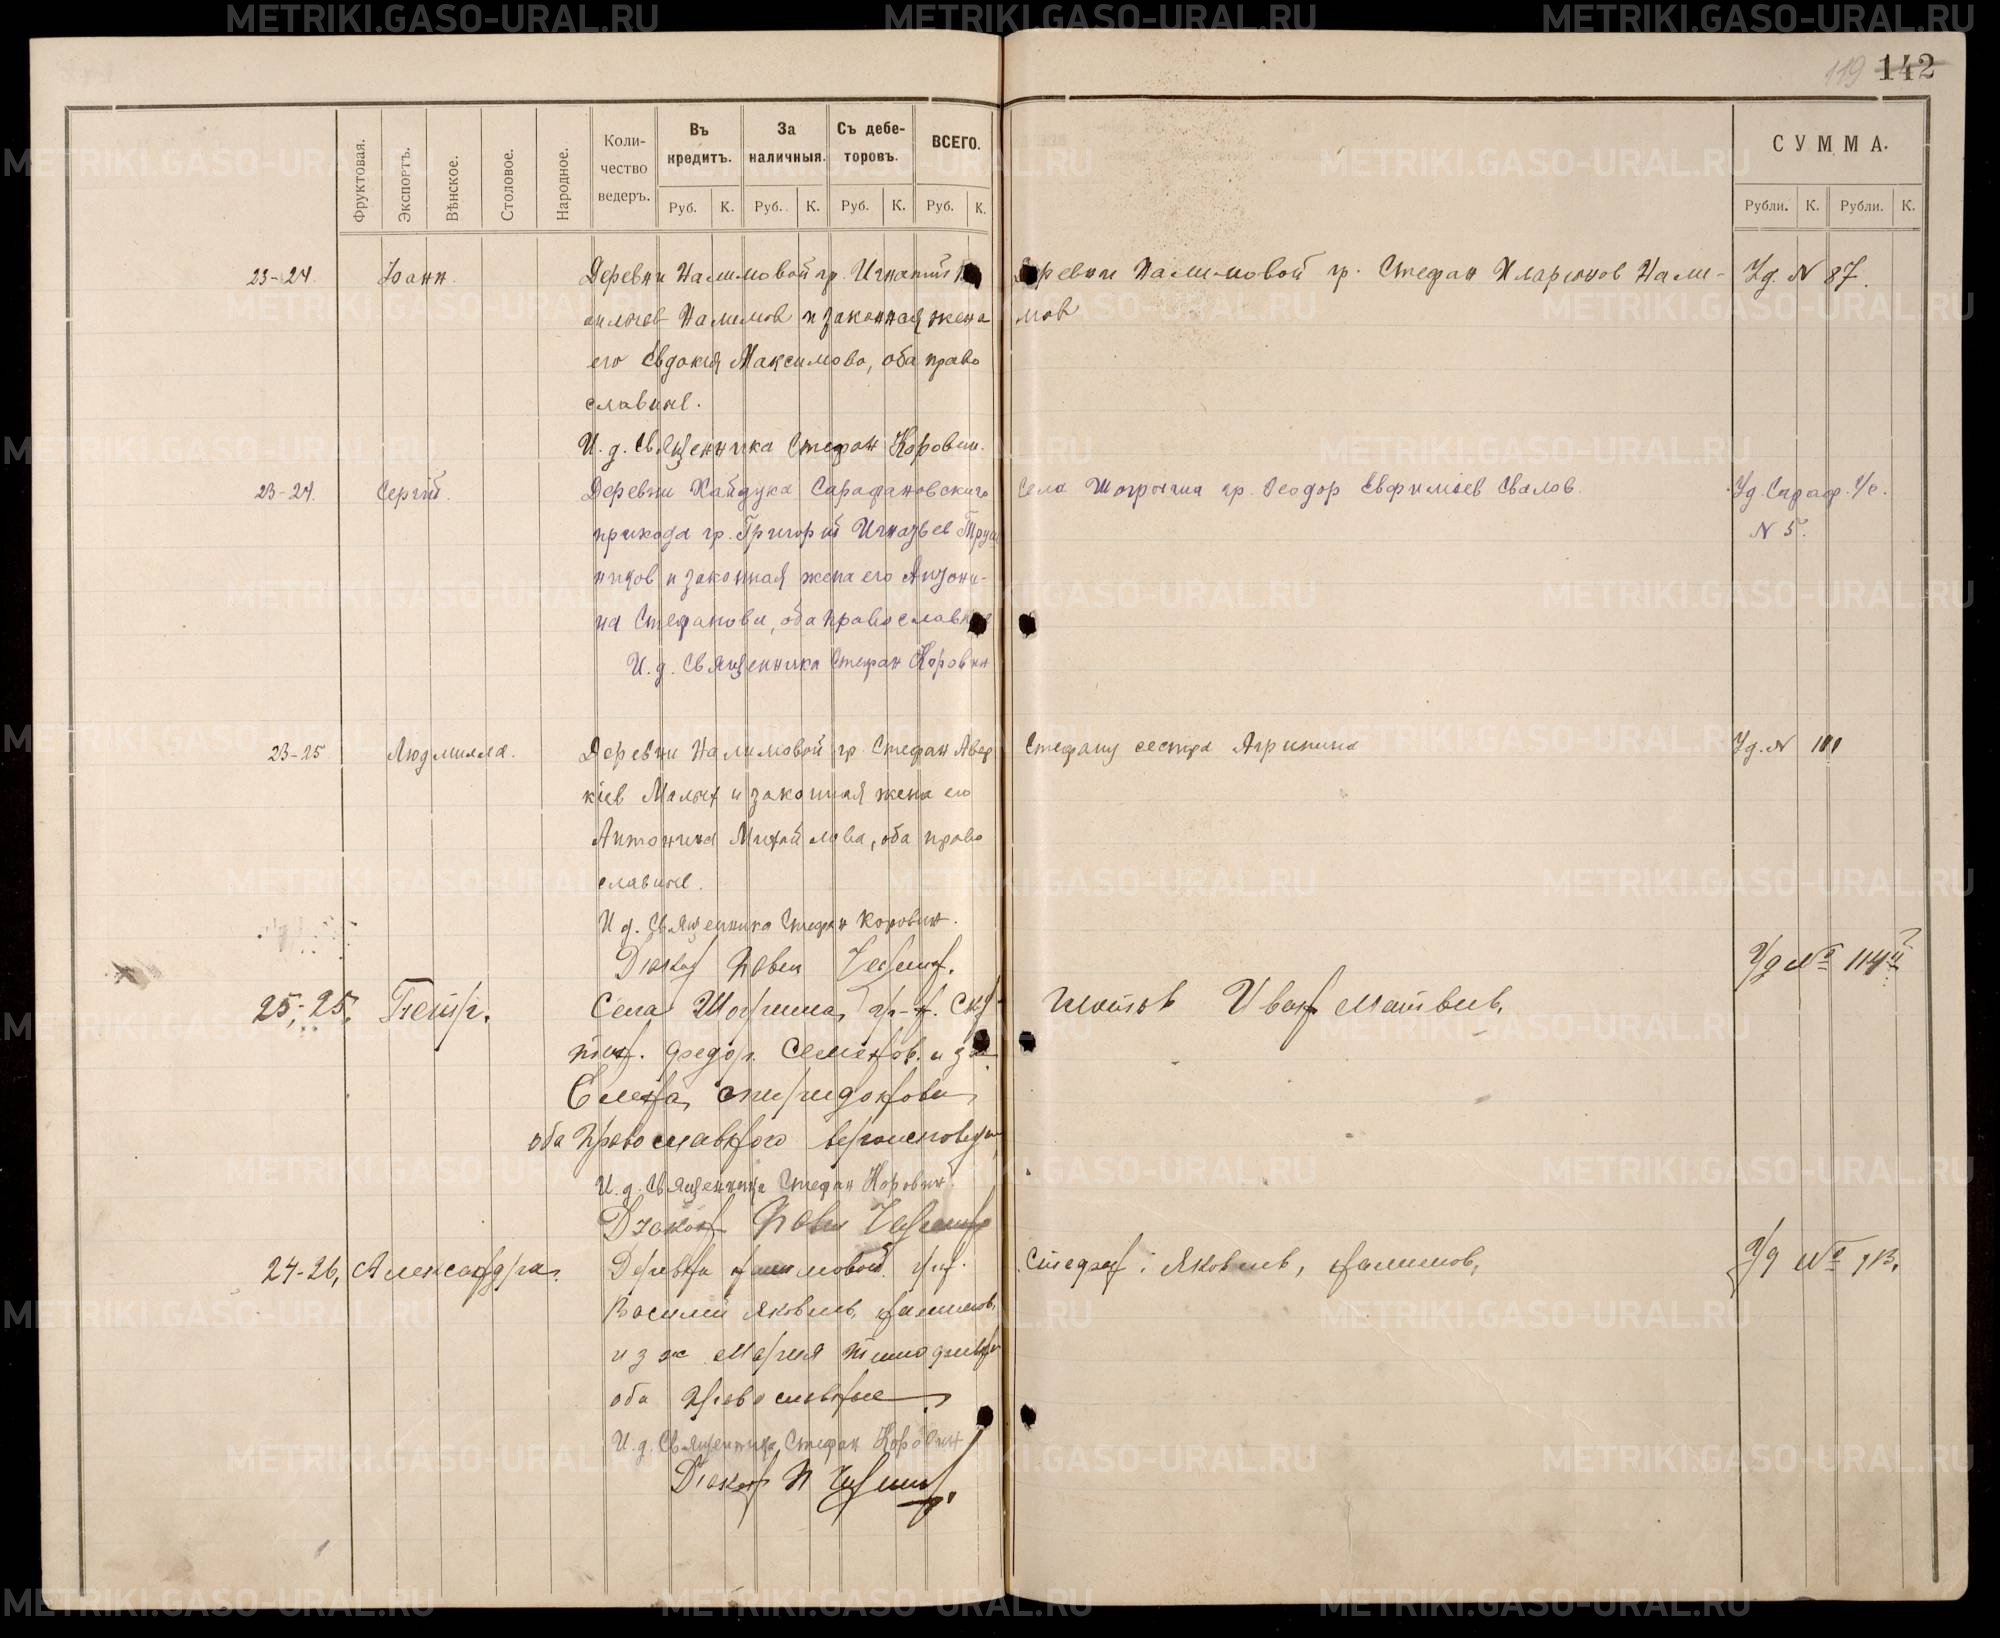 METRIKI.GASO-URAL.RU
119 142
Фруктовая.
Экспортъ.
Вѣнское.
Столовое.
Народное.
Коли-
чество
ведеръ.
Въ
кредитъ.
За
наличныя.
Съ дебе-
торовъ.
ВСЕГО.
Руб. К. Руб. К. Руб. К. Руб. К.
СУММА.
Рубли. К. Рубли. К.
23-24. Іоанн. Деревни Налимовой гр. Игнатий
Налимов и законная жена
его Евдокия Максимова, оба право
славные.
И. д. Священника Стефан Коровин.
Деревни Налимовой гр. Стефан Иларионов Нали-
мов
Уд. N 87.
23-24. Сергій. Деревни Хайдука Сарафановского
прихода гр. Григорий
ников и законная жена его Антони-
на Стефанова, оба православные
И. д. Священника Стефан Коровин
Села гр. Феодор Евфимиев Свалов.
Уд. Сараф.
N 5.
23-25 Людмилла. Деревни Налимовой гр. Стефан Авер
кіев Малых и законная жена его
Антонина Михайлова, оба право
славные.
И д. Священника Стефан Коровин.
Диакон Павел
Стефану сестра Агрипина
Уд. N 101
25-25. Петр. Села гр-н.
Федор. Семенов. и з ж
Елена Спиридонова
оба православного вероисповедан
И. д. Священника Стефан Коровин
Диакон Павел
Иван Матвеев.
Уд № 114
24-26, Александра. Деревня Налимовой гр.
Василий Яковлев, Налимов,
и з ж Мария Тимофеева
оба православные
И. д. Священника Стефан Коровин
Диакон П
Стефан Яковлев, Налимов,
Уд №